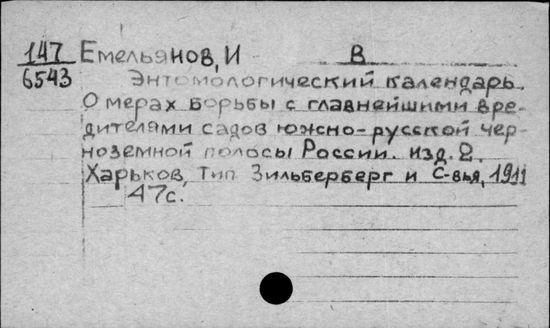 147 Емельянов, И В
6543 Энтомологический календарь.
О мерах борьбы с главнейшими вре-
дителями садов южно-русской чер-
ноземной полосы России. изд. 2.
Харьков, Тип. Зильберберг и С-вья, 1911
47с.